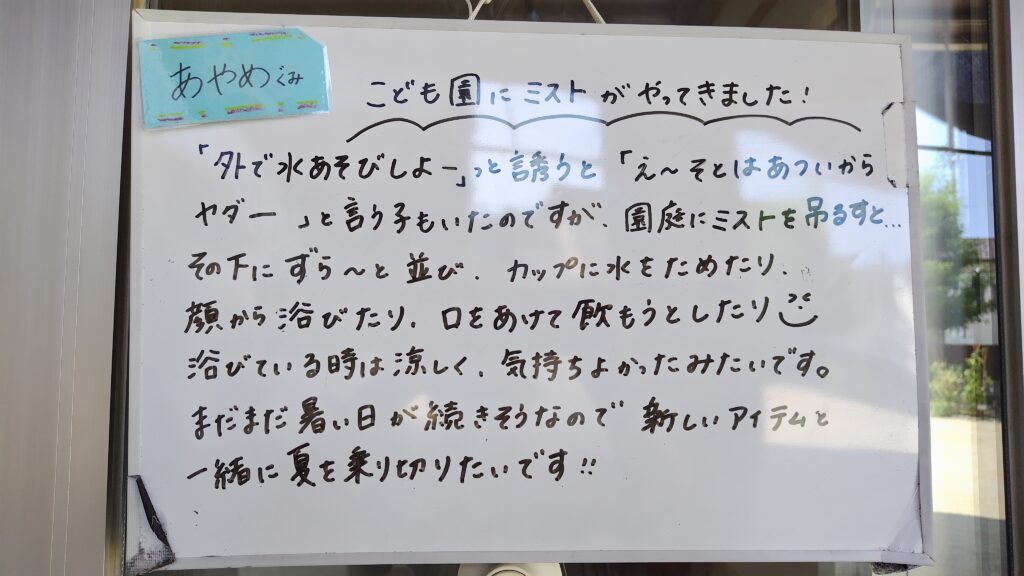 あやめぐみ
こども園にミストがやってきました!
「外で水あそびしよー」っと誘うと「え〜そとはあついから
ヤダー」と言う子もいたのですが、園庭にミストを吊るすと…
その下にずら〜と並び、カップに水をためたり、
顔から浴びたり、口をあけて飲もうとしたり
浴びている時は涼しく、気持ちよかったみたいです。
まだまだ暑い日が続きそうなので新しいアイテムと
一緒に夏を乗り切りたいです!!